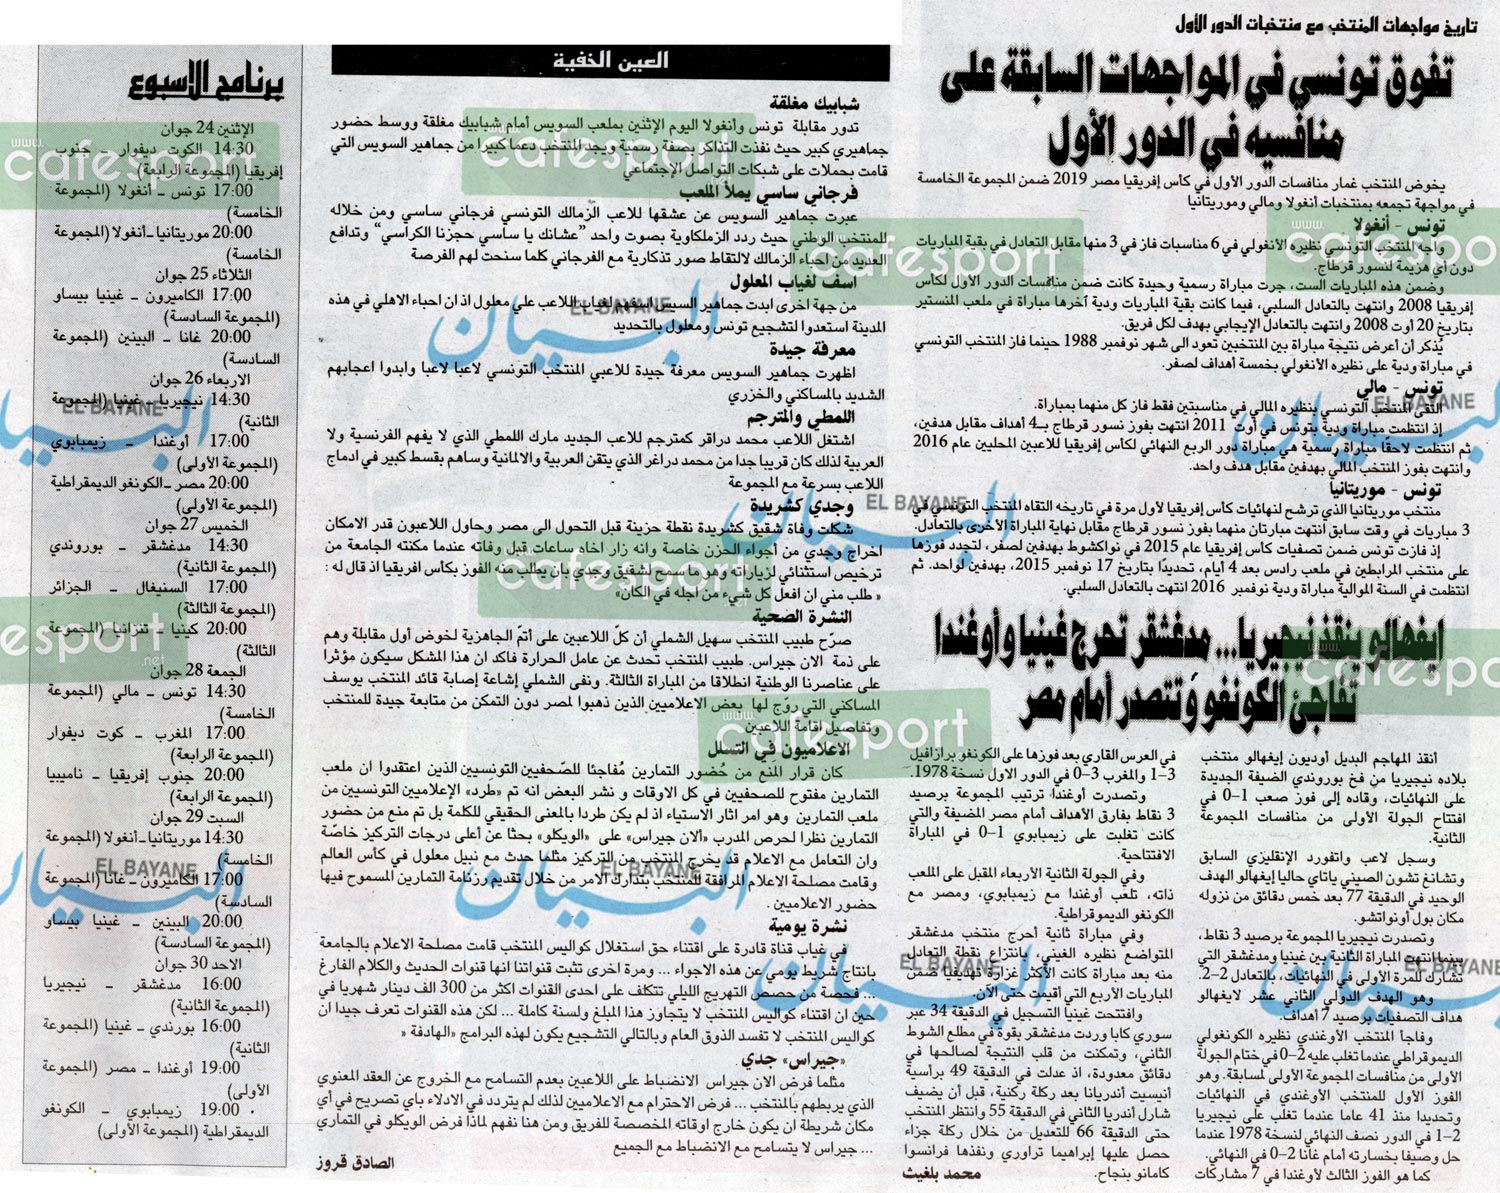 تاريخ مواجهات المنتخب مع منتخبات الدور الأول
تفوق تونسي في المواجهات السابقة على
منافسيه في الدور الأول
يخوض المنتخب غمار منافسات الدور الأول في كأس إفريقيا مصر 2019 ضمن المجموعة الخامسة
في مواجهة تجمعه بمنتخبات أنغولا ومالي وموريتانيا
تونس - أنغولا
واجه المنتخب التونسي نظيره الأنغولي في 6 مناسبات فاز في 3 منها مقابل التعادل في بقية المباريات
دون أي هزيمة لنسور قرطاج.
وضمن هذه المباريات الست، جرت مباراة رسمية وحيدة كانت ضمن منافسات الدور الأول لكأس
إفريقيا 2008 وانتهت بالتعادل السلبي، فيما كانت بقية المباريات ودية آخرها مباراة في ملعب المنستير
بتاريخ 20 أوت 2008 وانتهت بالتعادل الإيجابي بهدف لكل فريق.
يُذكر أن أعرض نتيجة مباراة بين المنتخبين تعود الى شهر نوفمبر 1988 حينما فاز المنتخب التونسي
في مباراة ودية على نظيره الأنغولي بخمسة أهداف لصفر.
تونس - مالي
التقى المنتخب التونسي بنظيره المالي في مناسبتين فقط فاز كل منهما بمباراة.
إذ انتظمت مباراة ودية بتونس في أوت 2011 انتهت بفوز نسور قرطاج بـ4 أهداف مقابل هدفين،
ثم انتظمت لاحقًا مباراة رسمية هي مباراة دور الربع النهائي لكأس إفريقيا للاعبين المحليين عام 2016
وانتهت بفوز المنتخب المالي بهدفين مقابل هدف واحد.
تونس - موريتانيا
منتخب موريتانيا الذي ترشح لنهائيات كأس إفريقيا لأول مرة في تاريخه التقاه المنتخب التونسي في
3 مباريات في وقت سابق انتهت مبارتان منهما بفوز نسور قرطاج مقابل نهاية المباراة الأخرى بالتعادل.
إذ فازت تونس ضمن تصفيات كأس إفريقيا عام 2015 في نواكشوط بهدفين لصفر، لتجدد فوزها
على منتخب المرابطين في ملعب رادس بعد 4 أيام، تحديدًا بتاريخ 17 نوفمبر 2015، بهدفين لواحد. ثم
انتظمت في السنة الموالية مباراة ودية نوفمبر 2016 انتهت بالتعادل السلبي.
إيغهالو ينقذ نيجيريا... مدغشقر تحرج غينيا وأوغندا
تفاجئ الكونغو وتتصدر أمام مصر
أنقذ المهاجم البديل أوديون إيغهالو منتخب
بلاده نيجيريا من فخ بوروندي الضيفة الجديدة
على النهائيات، وقاده إلى فوز صعب 1-0 في
افتتاح الجولة الأولى من منافسات المجموعة
الثانية.
وسجل لاعب واتفورد الإنقليزي السابق
وتشانغ تشون الصيني ياتاي حاليا إيغهالو الهدف
الوحيد في الدقيقة 77 بعد خمس دقائق من نزوله
مكان بول أونواتشو.
وتصدرت نيجيريا المجموعة برصيد 3 نقاط،
بينما انتهت المباراة الثانية بين غينيا ومدغشقر التي
تشارك للمرة الأولى في النهائيات، بالتعادل 2-2.
وهو الهدف الدولي الثاني عشر لايغهالو
هداف التصفيات برصيد 7 أهداف.
وفاجأ المنتخب الأوغندي نظيره الكونغولي
الديموقراطي عندما تغلب عليه 2-0 في ختام الجولة
الأولى من منافسات المجموعة الأولى لمسابقة. وهو
الفوز الأول للمنتخب الأوغندي في النهائيات
وتحديدا منذ 41 عاما عندما تغلب على نيجيريا
2-1 في الدور نصف النهائي لنسخة 1978 عندما
حل وصيفا بخسارته أمام غانا 2-0 في النهائي.
كما هو الفوز الثالث لأوغندا في 7 مشاركات
في العرس القاري بعد فوزها على الكونغو برازافيل
3-1 والمغرب 3-0 في الدور الاول نسخة 1978.
وتصدرت أوغندا ترتيب المجموعة برصيد
3 نقاط بفارق الأهداف أمام مصر المضيفة والتي
كانت تغلبت على زيمبابوي 1-0 في المباراة
الافتتاحية.
وفي الجولة الثانية الأربعاء المقبل على الملعب
ذاته، تلعب أوغندا مع زيمبابوي، ومصر مع
الكونغو الديموقراطية.
وفي مباراة ثانية أحرج منتخب مدغشقر
المتواضع نظيره الغيني، بانتزاع نقطة التعادل
منه بعد مباراة كانت الأكثر غزارة تهديفيا ضمن
المباريات الأربع التي أقيمت حتى الآن.
وافتتحت غينيا التسجيل في الدقيقة 34 عبر
سوري كابا وردت مدغشقر بقوة في مطلع الشوط
الثاني، وتمكنت من قلب النتيجة لصالحها في
دقائق معدودة، اذ عدلت في الدقيقة 49 برأسية
أنيسيت أندريانا بعد ركلة ركنية، قبل أن يضيف
شارل أندريا الثاني في الدقيقة 55 وانتظر المنتخب
حتى الدقيقة 66 للتعديل من خلال ركلة جزاء
حصل عليها إبراهيما تراوري ونفذها فرانسوا
كامانو بنجاح.
محمد بلغيث
العين الخفية
شبابيك مغلقة
تدور مقابلة تونس وأنغولا اليوم الإثنين بملعب السويس أمام شبابيك مغلقة ووسط حضور
جماهيري كبير حيث نفذت التذاكر بصفة رسمية ويجد المنتخب دعما كبيرا من جماهير السويس التي
قامت بحملات على شبكات التواصل الإجتماعي
فرجاني ساسي يملأ الملعب
عبرت جماهير السويس عن عشقها للاعب الزمالك التونسي فرجاني ساسي ومن خلاله
للمنتخب الوطني حيث ردد الزملكاوية بصوت واحد "عشانك يا ساسي حجزنا الكراسي" وتدافع
العديد من احباء الزمالك لالتقاط صور تذكارية مع الفرجاني كلما سنحت لهم الفرصة
اسف لغياب المعلول
من جهة اخرى ابدت جماهير السيس اسفهم لغياب اللاعب علي معلول اذ ان احباء الاهلي في هذه
المدينة استعدوا لتشجيع تونس ومعلول بالتحديد
معرفة جيدة
اظهرت جماهير السويس معرفة جيدة للاعبي المنتخب التونسي لاعبا لاعبا وابدوا اعجابهم
الشديد بالمساكني والخزري
اللمطي والمترجم
اشتغل اللاعب محمد دراقر كمترجم للاعب الجديد مارك اللمطي الذي لا يفهم الفرنسية ولا
العربية لذلك كان قريبا جدا من محمد دراغر الذي يتقن العربية والالمانية وساهم بقسط كبير في ادماج
اللاعب بسرعة مع المجموعة
وجدي كشريدة
شكلت وفاة شقيق كشريدة نقطة حزينة قبل التحول الى مصر وحاول اللاعبون قدر الامكان
اخراج وجدي من أجواء الحزن خاصة وانه زار اخاه ساعات قبل وفاته عندما مكنته الجامعة من
ترخيص استثنائي لزيارته وهو ما سمح لشقيق وجدي بان يطلب منه الفوز بكأس افريقيا اذ قال له :
« طلب مني ان افعل كل شيء من اجله في الكان»
النشرة الصحية
صرّح طبيب المنتخب سهيل الشملي أن كلّ اللاعبين على أتمّ الجاهزية لخوض أول مقابلة وهم
على ذمة الان جيراس. طبيب المنتخب تحدث عن عامل الحرارة فاكد ان هذا المشكل سيكون مؤثرا
على عناصرنا الوطنية انطلاقا من المباراة الثالثة. ونفى الشملي إشاعة إصابة قائد المنتخب يوسف
المساكني التي روّج لها بعض الاعلاميين الذين ذهبوا لمصر دون التمكن من متابعة جيدة للمنتخب
وتفاصيل اقامة اللاعبين
الاعلاميون في التسلل
كان قرار المنع من حُضور التمارين مُفاجئا للصّحفيين التونسيين الذين اعتقدوا ان ملعب
التمارين مفتوح للصحفيين في كل الاوقات و نشر البعض انه تم «طرد» الإعلاميين التونسيين من
ملعب التمارين وهو امر اثار الاستياء اذ لم يكن طردا بالمعنى الحقيقي للكلمة بل تم منع من حضور
التمارين نظرا لحرص المدرب «ألان جيراس» على «الويكلو» بحثا عن أعلى درجات التركيز خاصّة
وان التعامل مع الاعلام قد يخرج المنتخب من التركيز مثلما حدث مع نبيل معلول في كأس العالم
وقامت مصلحة الاعلام المرافقة للمنتخب بتدارك الامر من خلال تقديم رزنامة التمارين المسموح فيها
حضور الاعلاميين .
نشرة يومية
في غياب قناة قادرة على اقتناء حق استغلال كواليس المنتخب قامت مصلحة الاعلام بالجامعة
بانتاج شريط يومي عن هذه الاجواء ... ومرة اخرى تثبت قنواتنا انها قنوات الحديث والكلام الفارغ
... فحصة من حصص التهريج الليلي تتكلف على احدى القنوات اكثر من 300 الف دينار شهريا في
حين ان اقتناء كواليس المنتخب لا يتجاوز هذا المبلغ ولسنة كاملة ... لكن هذه القنوات تعرف جيدا ان
كواليس المنتخب لا تفسد الذوق العام وبالتالي التشجيع يكون لهذه البرامج «الهادفة »
«جيراس» جدي
مثلما فرض الان جيراس الانضباط على اللاعبين بعدم التسامح مع الخروج عن العقد المعنوي
الذي يربطهم بالمنتخب ... فرض الاحترام مع الاعلاميين لذلك لم يتردد في الادلاء باي تصريح في أي
مكان شريطة ان يكون خارج اوقاته المخصصة للفريق ومن هنا نفهم لماذا فرض الويكلو في التماري
... جيراس لا يتسامح مع الانضباط مع الجميع
الصادق قروز
برنامج الاسبوع
الإثنين 24 جوان
14:30 الكوت ديفوار - جنوب
إفريقيا (المجموعة الرابعة)
17:00 تونس - أنغولا (المجموعة
الخامسة)
20:00 موريتانيا-أنغولا (المجموعة
الخامسة)
الثلاثاء 25 جوان
17:00 الكاميرون - غينيا بيساو
(المجموعة السادسة)
20:00 غانا - البينين (المجموعة
السادسة)
الاربعاء 26 جوان
14:30 نيجيريا - غينيا (المجموعة
الثانية)
17:00 أوغندا - زيمبابوي
(المجموعة الأولى)
20:00 مصر - الكونغو الديمقراطية
(المجموعة الأولى)
الخميس 27 جوان
14:30 مدغشقر - بوروندي
(المجموعة الثانية)
17:00 السنيغال - الجزائر
(المجموعة الثالثة)
20:00 كينيا - تنزانيا (المجموعة
الثالثة)
الجمعة 28 جوان
14:30 تونس - مالي (المجموعة
الخامسة)
17:00 المغرب - كوت ديفوار
(المجموعة الرابعة)
20:00 جنوب إفريقيا - ناميبيا
(المجموعة الرابعة)
السبت 29 جوان
14:30 موريتانيا-أنغولا (المجموعة
الخامسة)
17:00 الكاميرون - غانا (المجموعة
السادسة)
20:00 البينين - غينيا بيساو
(المجموعة السادسة)
الاحد 30 جوان
16:00 مدغشقر - نيجيريا
(المجموعة الثانية)
16:00 بورندي - غينيا (المجموعة
الثانية)
19:00 أوغندا - مصر (المجموعة
الأولى)
19:00 زيمبابوي - الكونغو
الديمقراطية (المجموعة الأولى)
www.cafesport.net
البيان
EL BAYANE